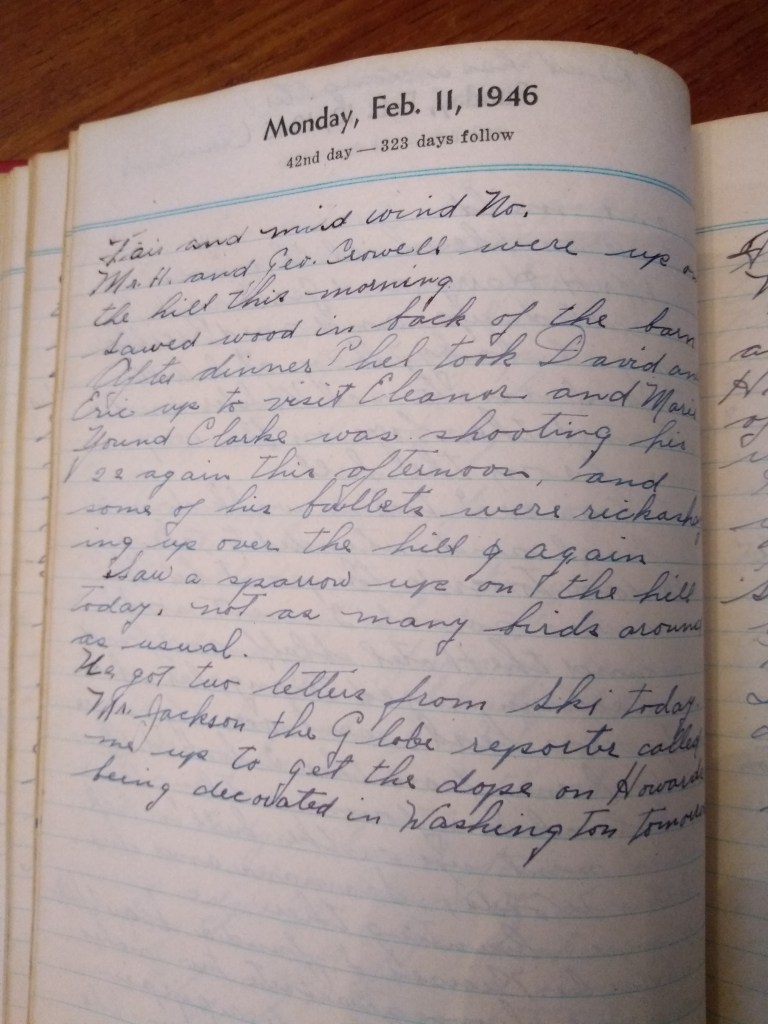 Monday, Feb. 11, 1946
42nd day — 323 days follow
Fair and mild wind No.
Mr. H. and Geo. Crowell were up o
the hill this morning
Sawed wood in back of the barn
After dinner Phel took David an
Eric up to visit Eleanor and Marie
Found Clarke was shooting his
22 again this afternoon, and
some of his bullets were rickash
ing up over the hill again
Saw a sparrow up on the hill
today, not as many birds around
as usual.
got two letters from Ski today.
Mr. Jackson the Globe reporter called
me up to get the dope on Howards
being decorated in Washington tomorro